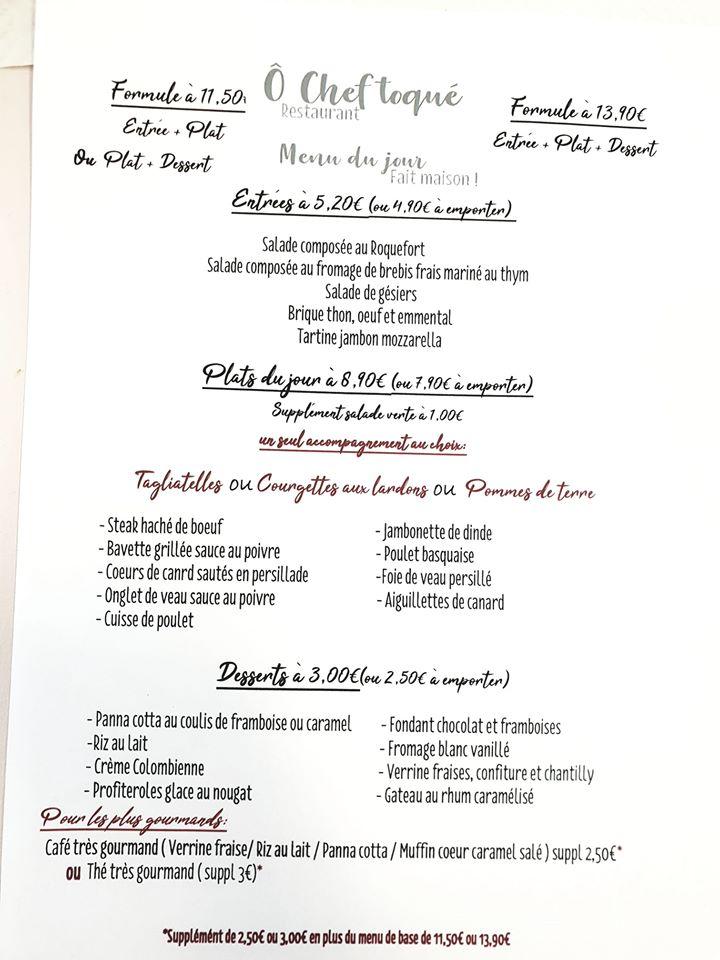 Ô Chef toqué
Restaurant
Formule à 11,50
Entrée + Plat
Ou Plat + Dessert
Formule à 13,90€
Entrée + Plat + Dessert
Menu du jour
Fait maison !
Entrées à 5,20€ (ou 4,90€ à emporter)
Salade composée au Roquefort
Salade composée au fromage de brebis frais mariné au thym
Salade de gésiers
Brique thon, oeuf et emmental
Tartine jambon mozzarella
Plats du jour à 8,90€ (ou 7,90€ à emporter)
Supplément salade verte à 1,00€
un seul accompagnement au choix:
Tagliatelles ou Courgettes aux lardons ou Pommes de terre
- Steak haché de boeuf
- Bavette grillée sauce au poivre
- Coeurs de canrd sautés en persillade
- Onglet de veau sauce au poivre
- Cuisse de poulet
- Jambonette de dinde
- Poulet basquaise
-Foie de veau persillé
- Aiguillettes de canard
Desserts à 3,00€(ou 2,50€ à emporter)
- Panna cotta au coulis de framboise ou caramel
-Riz au lait
- Crème Colombienne
- Profiteroles glace au nougat
- Fondant chocolat et framboises
- Fromage blanc vanillé
- Verrine fraises, confiture et chantilly
- Gateau au rhum caramélisé
Pour les plus gourmands:
Café très gourmand ( Verrine fraise/ Riz au lait / Panna cotta / Muffin coeur caramel salé ) suppl 2,50€*
ou Thé très gourmand ( suppl 3€)*
*Supplémént de 2,50€ ou 3,00€ en plus du menu de base de 11,50€ ou 13,90€